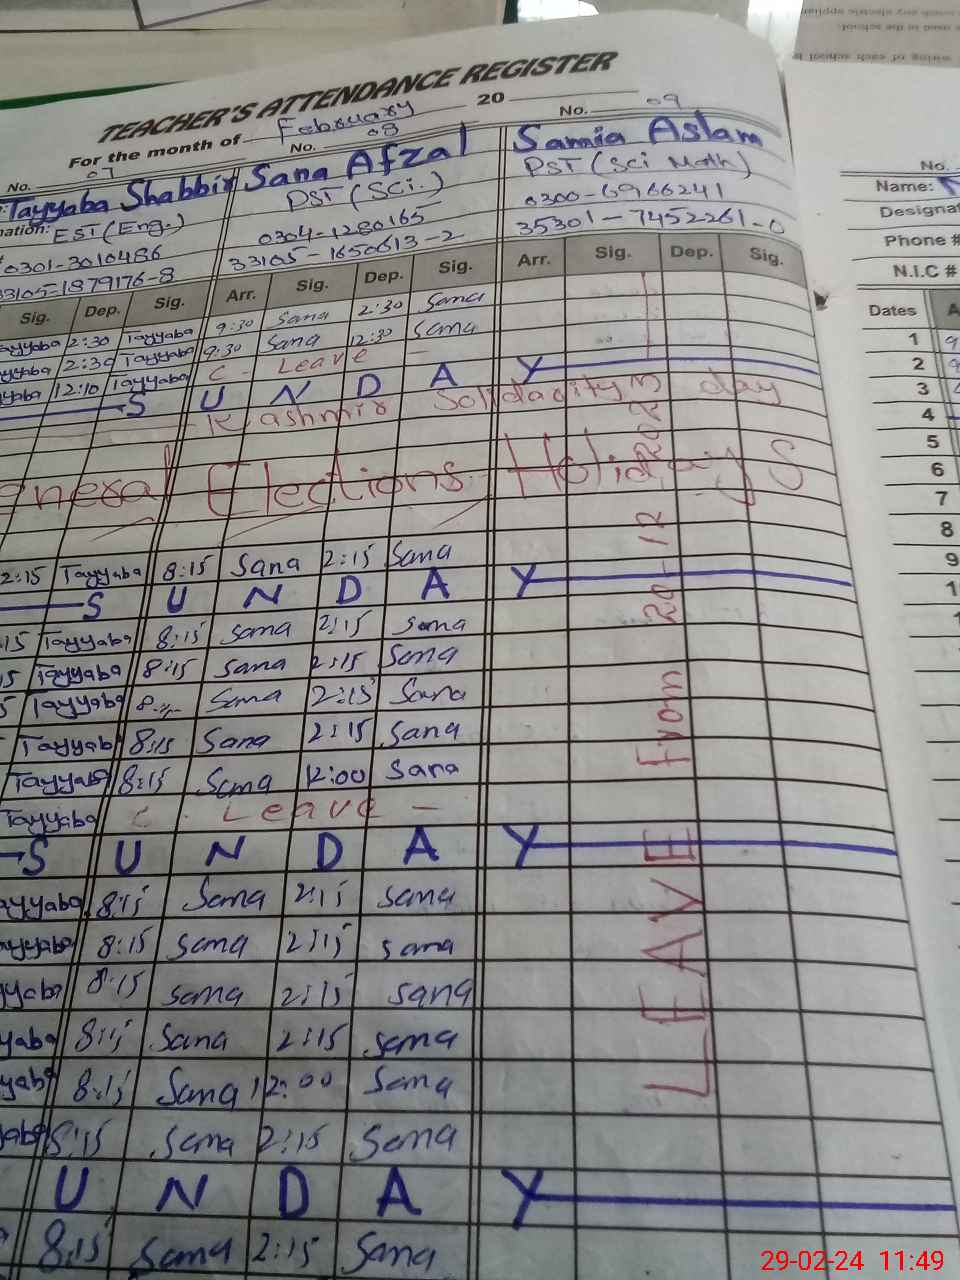 TEACHER'S ATTENDANCE REGISTER
For the month of February 20
No. 07 No. 08 No. 09
Tayyaba Shabbir Sana Afzal Samia Aslam
nation: EST (Eng.) PST (Sci.) PST (Sci Math)
0301-3010486 0304-1280165 0300-6966241
33105-1879176-8 33105-1650613-2 35301-7452261-0
Sig. Dep. Sig. Arr. Sig. Dep. Sig. Arr. Sig. Dep. Sig.
ayyaba 2:30 Tayyaba 9:30 Sana 2:30 Sana
ayyaba 2:30 Tayyaba 9:30 Sana 12:30 Sana
yaba 12:10 Tayyaba C- Leave -
S U N D A Y
Kashmir Solidarity day
eneral Elections Holidays
2:15 Tayyaba 8:15 Sana 2:15 Sana
S U N D A Y
15 Tayyaba 8:15 Sana 2:15 Sana
15 Tayyaba 8:15 Sana 2:15 Sana
5 Tayyaba 8:15 Sana 2:15 Sana
Tayyab 8:15 Sana 2:15 Sana
Tayyaba 8:15 Sana 12:00 Sana
Tayyaba C. Leave -
S U N D A Y
ayyaba 8:15 Sana 2:15 Sana
ayyaba 8:15 Sana 2:15 Sana
yyaba 8:15 Sana 2:15 Sana
yaba 8:15 Sana 2:15 Sana
yaba 8:15 Sana 12:00 Sana
yaba 8:15 Sana 2:15 Sana
U N D A Y
8:15 Sana 2:15 Sana
LEAVE From 20-12
No.
Name:
Designat
Phone #
N.I.C #
Dates A
1 9
2
3
4
5
6
7
8
9
1
29-02-24 11:49